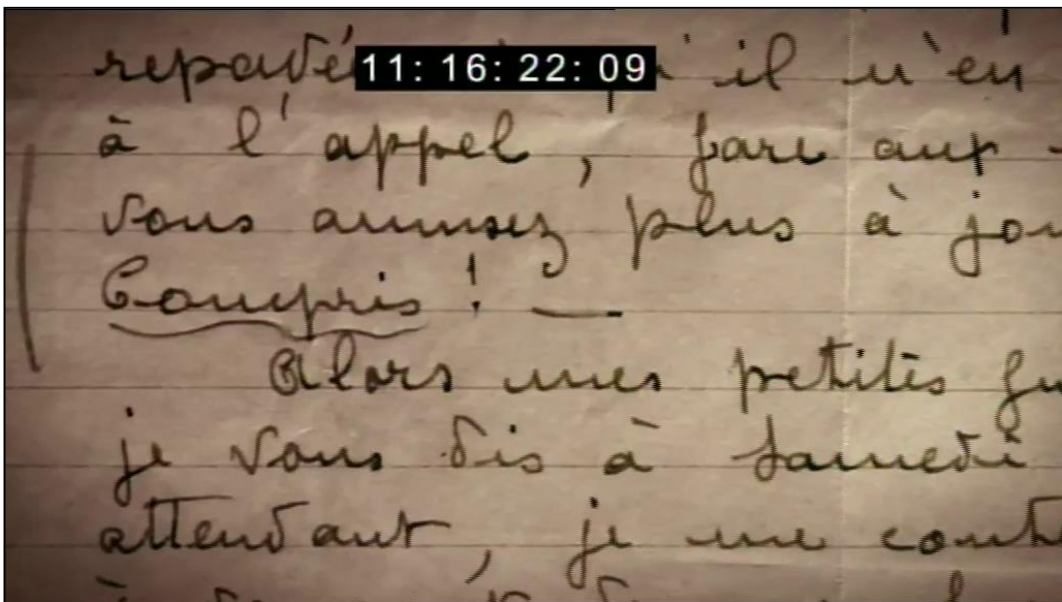 11: 16: 22: 09
il n'en
à l'appel, gare aux
vous amusez plus à jou
Compris ! —
Alors mes petites
je vous dis à Samedi
attendant, je me cont